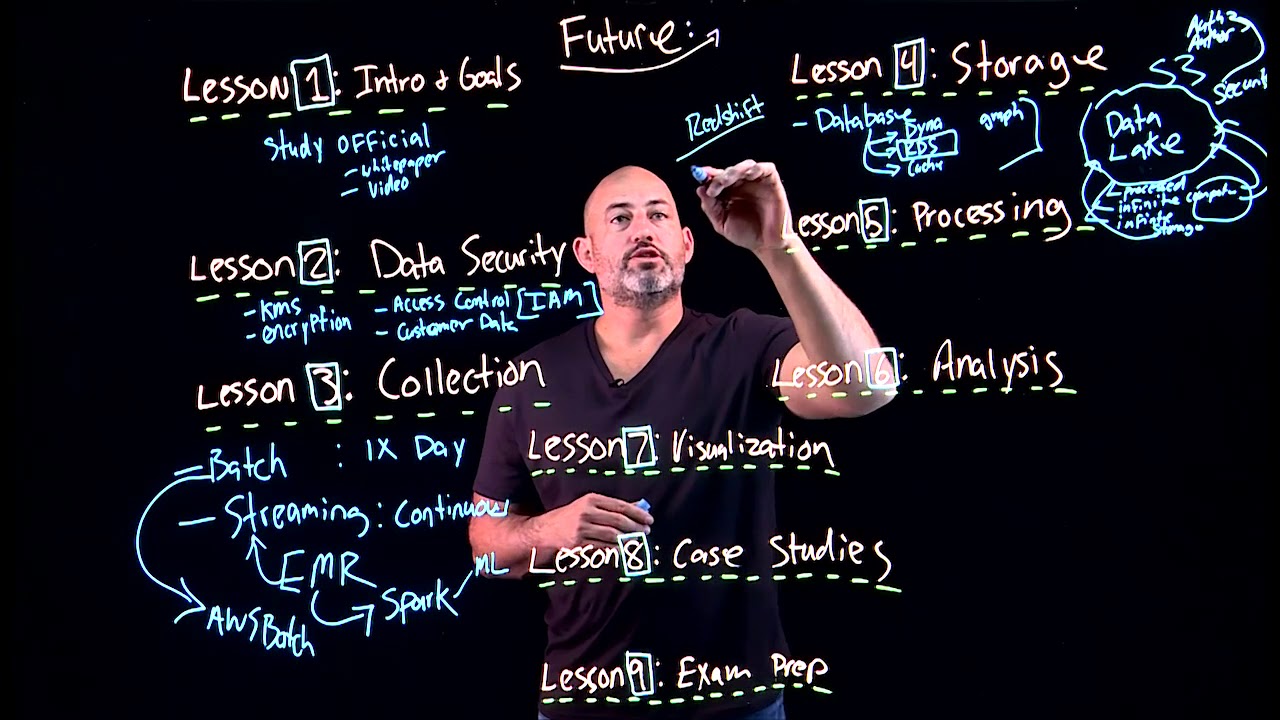 Future:
Lesson 1: Intro & Goals
Study Official
- whitepaper
- Video
Lesson 2: Data Security
- KMS
- encryption
- Access Control [IAM]
- Customer Data
Lesson 3: Collection
- Batch : 1X Day
- Streaming: Continuous
EMR
Spark
ML
AWS Batch
Redshift
Lesson 4: Storage
- Database
Dyna
RDS
Cache
graph
S3
Data
Lake
- processed
- infinite compute
- infinite
Storage
Lesson 5: Processing
Lesson 6: Analysis
Lesson 7: Visualization
Lesson 8: Case Studies
Lesson 9: Exam Prep